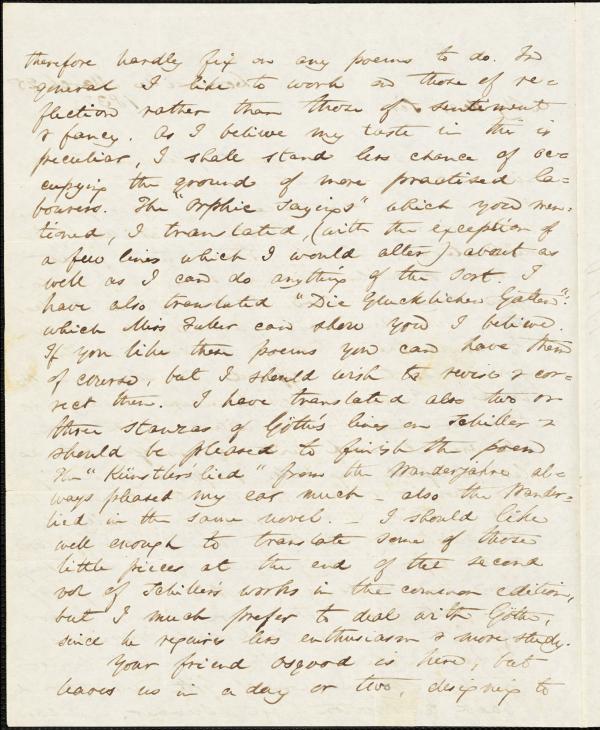 therefore hardly fix on any poems to do. In
general I like to work on those of re=
flection rather than those of sentiment
& fancy. As I believe my taste in this is
peculiar, I shall stand less chance of oc=
cupying the ground of more practised la=
bourers. The "Orphic Sayings" which you men=
tioned, I translated, (with the exception of
a few lines which I would alter) about as
well as I can do anything of the sort. I
have also translated "Die Glucklichen Gatten":
which Miss Fuller can show you I believe.
If you like these poems you can have them
of course, but I should wish to revise & cor=
rect them. I have translated also two or
three stanzas of Göthe's lines on Schiller &
should be pleased to finish the poem
The "Künstlerslied" from the Wanderjahre al=
ways pleased my ear much – also the Wander=
lied in the same novel. – I should like
well enough to translate some of those
little pieces at the end of the second
vol of Schiller's works in the common edition,
but I much prefer to deal with Göthe,
since he requires less enthusiasm & more study.
Your friend Osgood is here, but
leaves us in a day or two, designing to